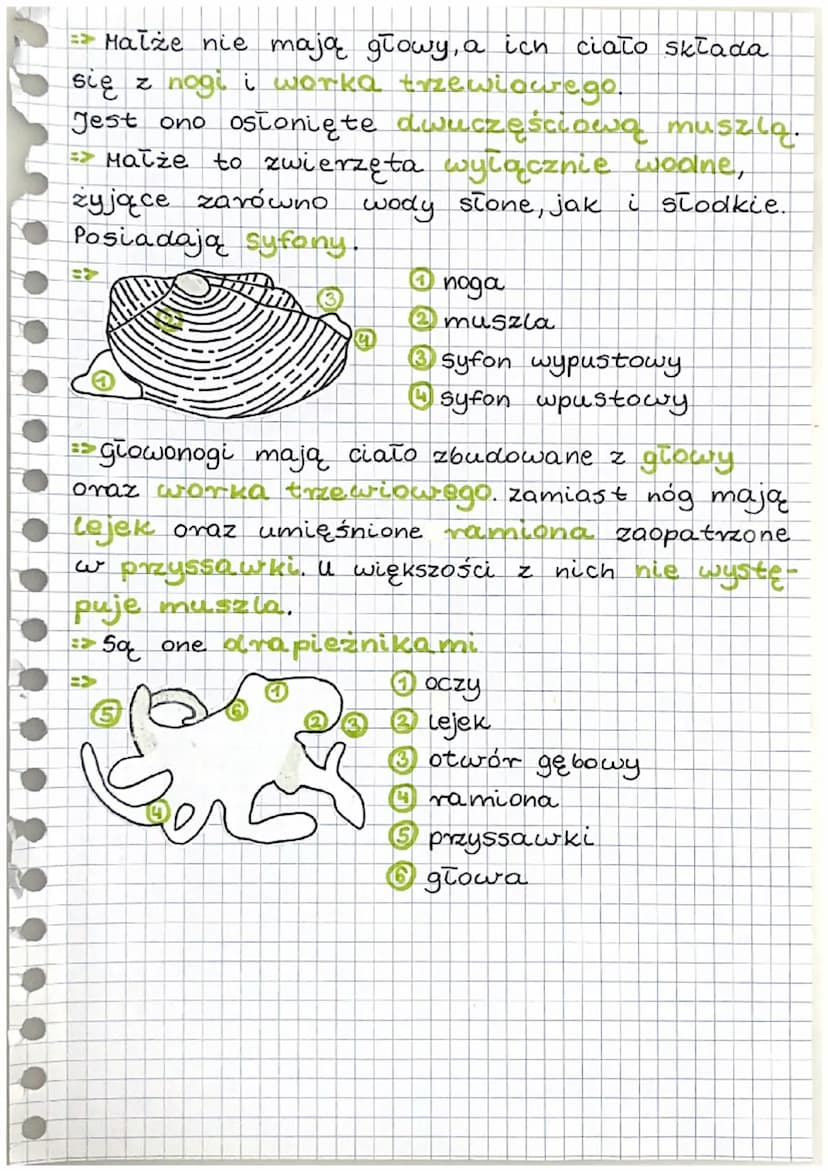 => Małże nie mają głowy, a ich ciało składa
się z nogi i worka trzewiowego.
Jest ono osłonięte dwuczęściową muszlą.
=> Małże to zwierzęta wyłącznie wodne,
żyjące zarówno wody słone, jak i słodkie.
Posiadają syfony.
=>
① noga
② muszla
③ syfon wypustowy
④ syfon wpustowy
3
2
4
1
=> głowonogi mają ciało zbudowane z głowy
oraz worka trzewiowego. zamiast nóg mają
lejek oraz umięśnione ramiona zaopatrzone
w przyssawki. U większości z nich nie wystę-
puje muszla.
=> Są one drapieżnikami
=>
① oczy
② lejek
③ otwór gębowy
④ ramiona
⑤ przyssawki
⑥ głowa
1
6
5
2
3
4